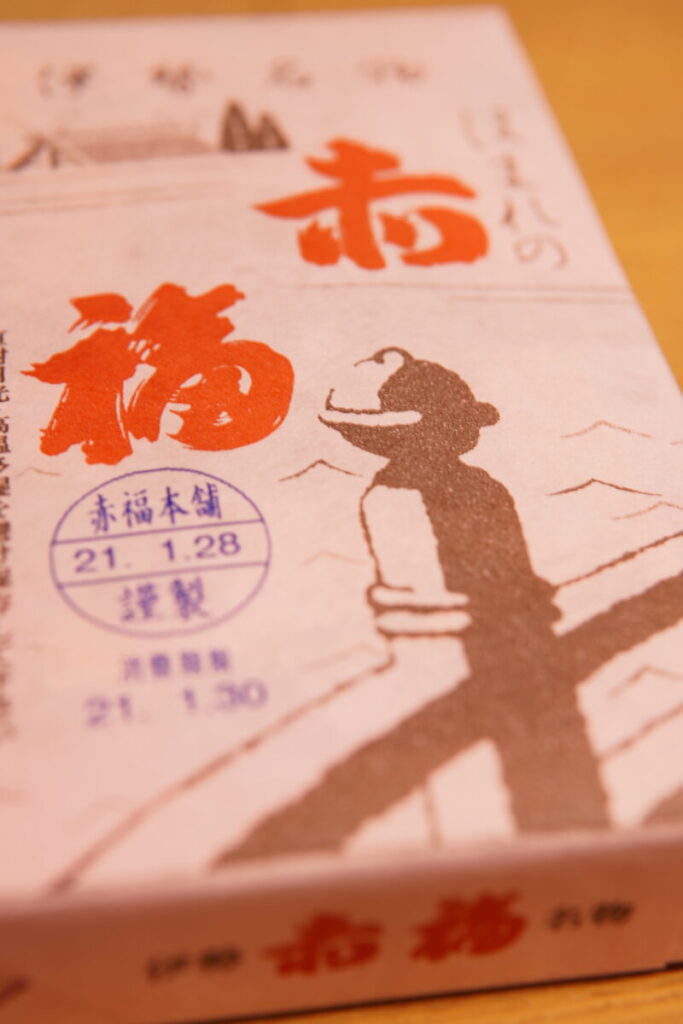 伊勢名物
ほまれの
赤
福
赤福本舗
21. 1.28
謹製
消費期限
21. 1.30
伊勢 赤福 名物